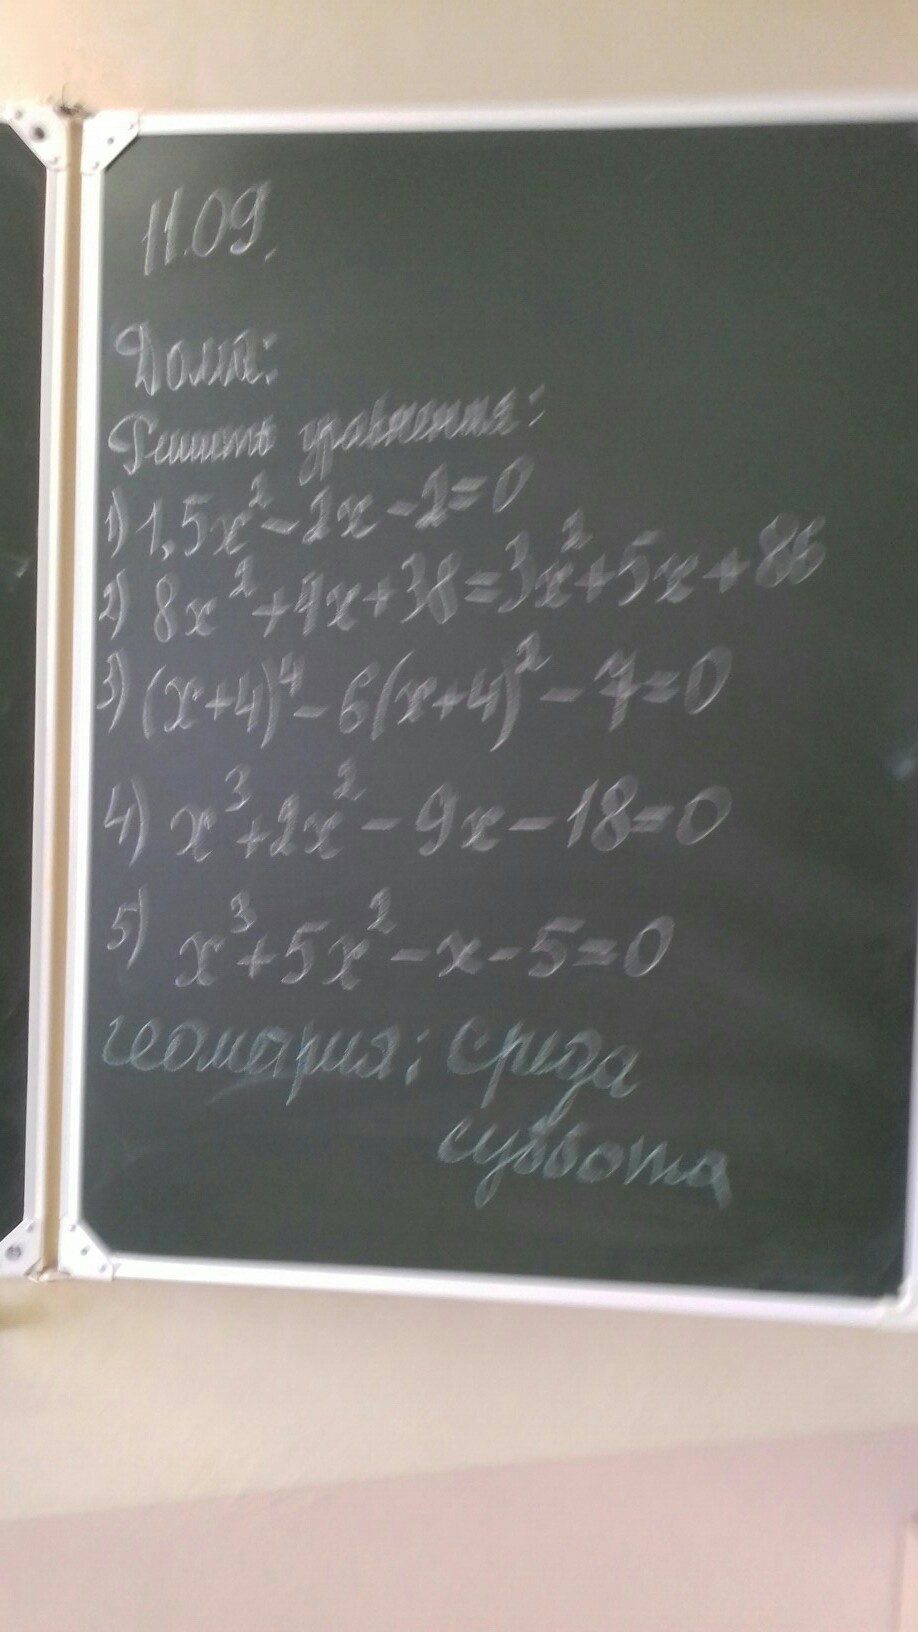 11.09.
Дома:
Решить уравнения:
1) 1,5x² - 2x - 2 = 0
2) 8x² + 4x + 38 = 3x² + 5x + 86
3) (x+4)⁴ - 6(x+4)² - 7 = 0
4) x³ + 2x² - 9x - 18 = 0
5) x³ + 5x² - x - 5 = 0
геометрия: среда
суббота